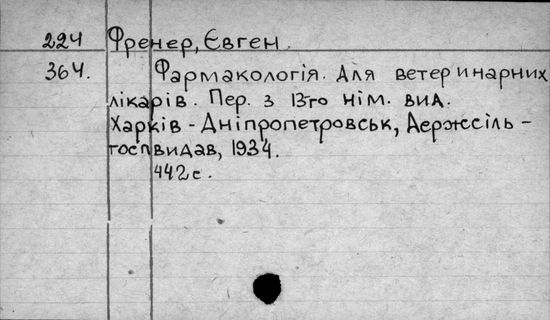 224 Френер, Євген.
364. Фармакологія. Для ветеринарних
лікарів. Пер. з 13-го нім. вид.
Харків - Дніпропетровськ, Держсіль-
госпвидав, 1934.
442 с.